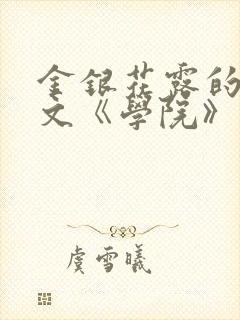 金銀花露的
文《學院》
虞雪曦